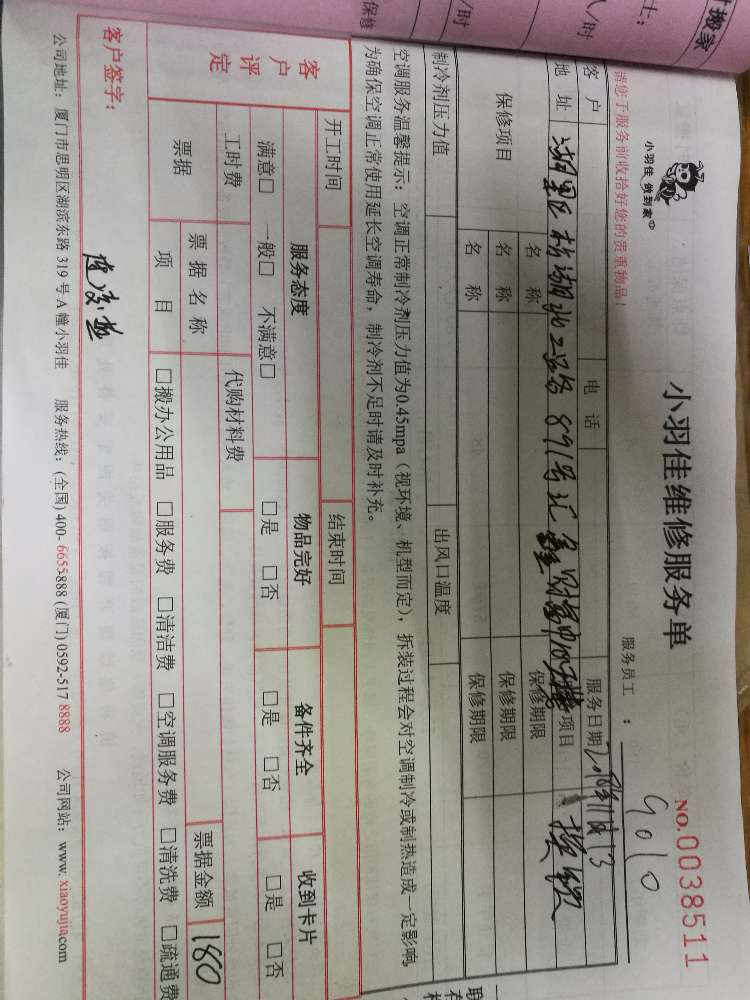 小羽佳 做到家
小羽佳维修服务单
NO.0038511
请您于服务前收拾好您的贵重物品!
服务员工： 9010
客户
电话
服务日期
地址
湖里区枋湖北二路 891号汇鑫财富中心
项目 换锁
保修项目
名称
保修期限
名称
保修期限
名称
保修期限
制冷剂压力值
出风口温度
空调服务温馨提示：空调正常制冷剂压力值为0.45mpa（视环境、机型而定），拆装过程会对空调制冷或制热造成一定影响。
为确保空调正常使用延长空调寿命，制冷剂不足时请及时补充。
开工时间
结束时间
客户评定
服务态度
物品完好
备件齐全
收到卡片
满意□ 一般□ 不满意□
□是 □否
□是 □否
□是 □否
工时费
代购材料费
票据
票据名称
票据金额 180
项目
□搬办公用品 □服务费 □清洁费 □空调服务费 □清洗费 □疏通费
客户签字：
公司地址：厦门市思明区湖滨东路 319 号 A 幢小羽佳 服务热线：(全国) 400-6655-888 (厦门) 0592-517 8888 公司网站：www.xiaoyujia.com